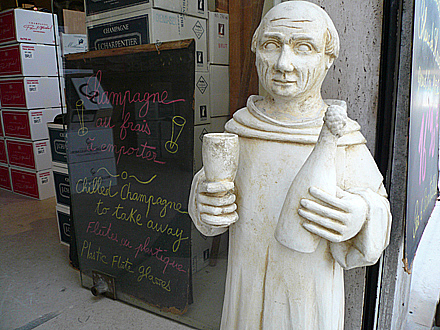 CHAMPAGNE
J.CHARPENTIER
Champagne
au frais
à emporter
chilled Champagne
to take away
Flûtes en plastique
Plastic Flute glasses